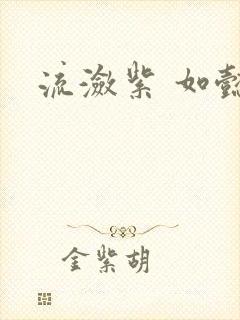 流潋紫 如懿
金紫胡